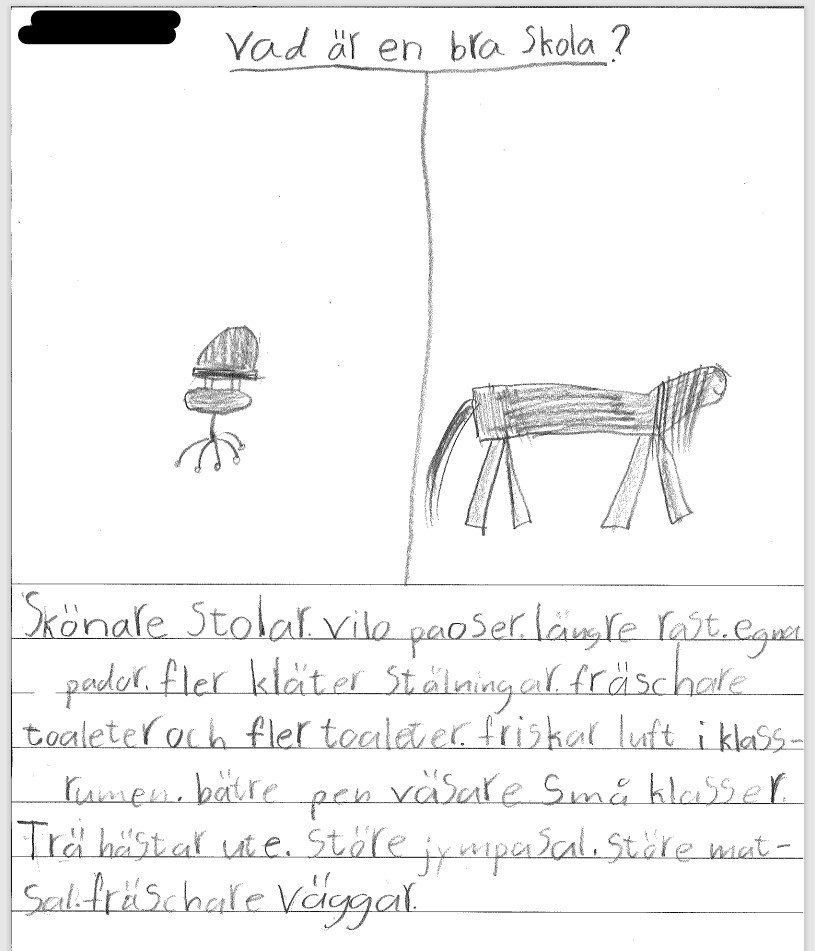 Vad är en bra skola?
Skönare stolar. vilo paoser. längre rast. egna
pador. fler kläter stälningar. fräschare
toaleter och fler toaleter. friskar luft i klass-
rumen. bätre pen väsare små klasser.
Trä hästar ute. störe jympasal. störe mat-
sal. fräschare väggar.